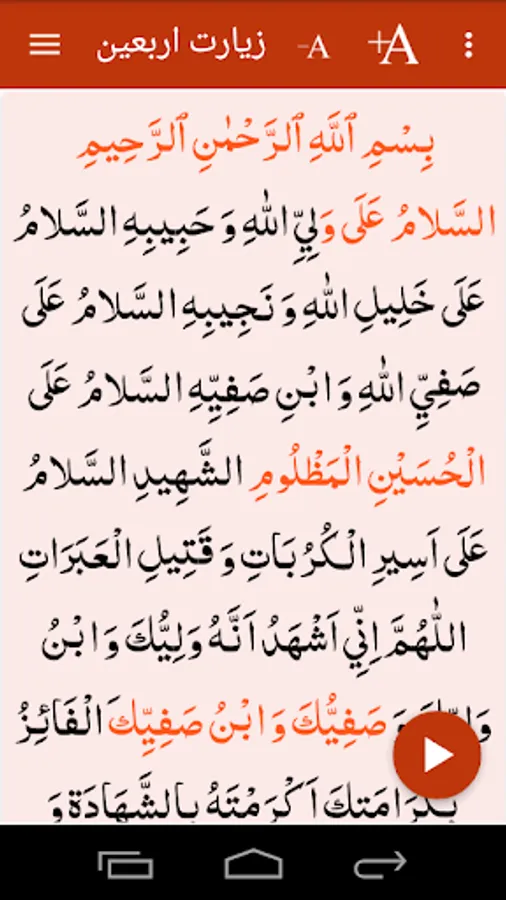 زیارت اربعین -A +A
بِسْمِ ٱللَّهِ ٱلرَّحْمٰنِ ٱلرَّحِيمِ
السَّلامُ عَلَى وَلِيِّ اللهِ وَ حَبِيبِهِ السَّلامُ
عَلَى خَلِيلِ اللهِ وَ نَجِيبِهِ السَّلامُ عَلَى
صَفِيِّ اللهِ وَ ابْنِ صَفِيِّهِ السَّلامُ عَلَى
الْحُسَيْنِ الْمَظْلُومِ الشَّهِيدِ السَّلامُ
عَلَى اَسِيرِ الْكُرُبَاتِ وَ قَتِيلِ الْعَبَرَاتِ
اللّٰهُمَّ اِنِّي اَشْهَدُ اَنَّهُ وَلِيُّكَ وَ ابْنُ
وَ صَفِيُّكَ وَ ابْنُ صَفِيِّكَ الْفَائِزُ
بِكَرَامَتِكَ اَكْرَمْتَهُ بِالشَّهَادَةِ وَ